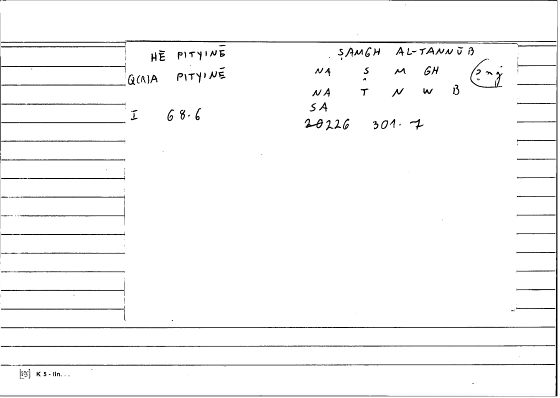 HĒ PITYINĒ
Q(R)A PITYINĒ
I 68.6
ṢAMGH AL-TANNŪB
NA Ṣ M GH
NA T N W B
SA
20226 301.7
K 5 - IIn...